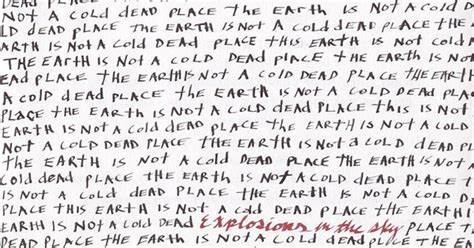 NOT A COLD DEAD PLACE THE EARTH IS NOT A COLD
LD DEAD PLACE THE EARTH IS NOT A COLD DEAD PLACE THE
ARTH IS NOT A COLD DEAD PLACE THIS EARTH IS NOT COLD
THE EARTH IS NOT A COLD DEAD PLACE THE EARTH IS NOT
IS NOT A COLD DEAD PLACE THE EARTH IS NOT A COLD DEAD
COLD DEAD PLACE THE EARTH IS NOT A COLD DEAD PLACE THE EARTH
A COLD DEAD PLACE THE EARTH IS NOT A COLD DEAD PLACE
PLACE THE EARTH IS NOT A COLD DEAD PLACE THIS IS NOT
EARTH IS NOT A COLD DEAD PLACE THE EARTH IS NOT A COLD
NOT A COLD DEAD PLACE THE EARTH IS NOT A COLD DEAD
THE EARTH IS NOT A COLD DEAD PLACE THE EARTH IS NOT
COLD DEAD PLACE THE EARTH IS NOT A COLD DEAD PLACE T
IS NOT A COLD DEAD PLACE THE EARTH IS NOT A COLD DEAD
PLACE THIS EARTH IS NOT A COLD DEAD PLACE THE EARTH
EARTH IS NOT A COLD DEAD Explosions in the sky PLACE T
DEAD PLACE THE EARTH IS NOT A COLD DEAD PLACE THE EARTH